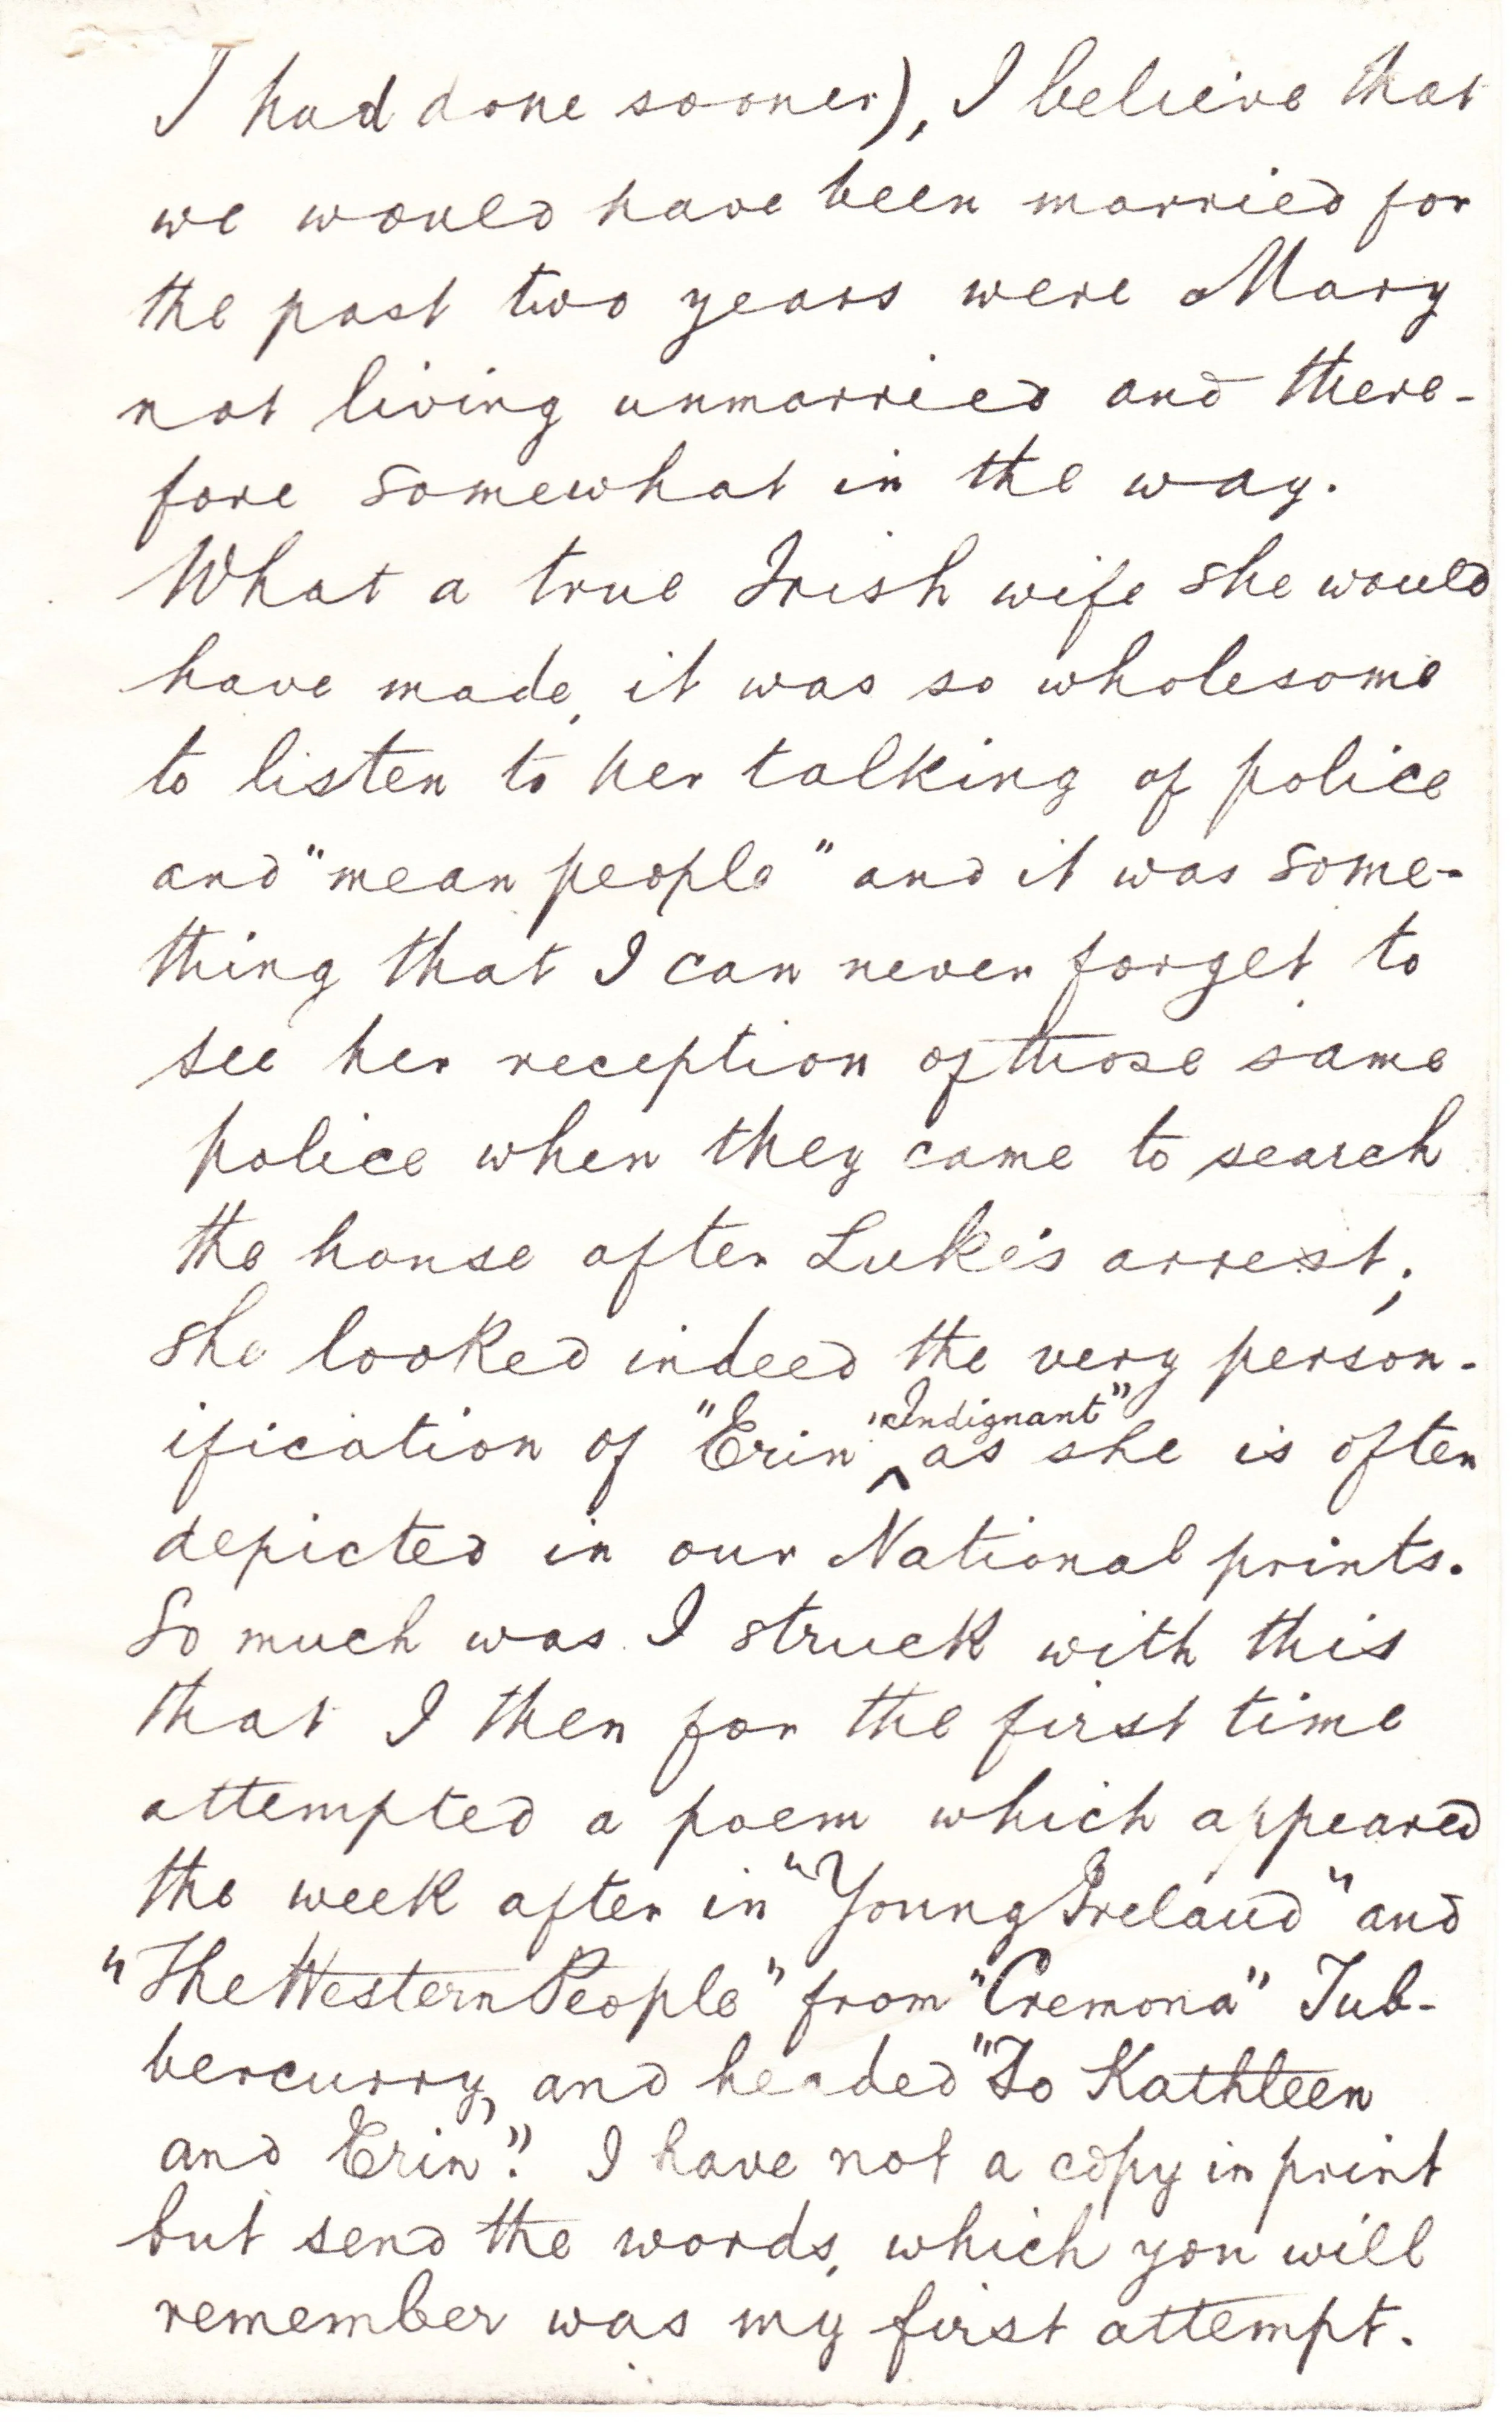 I had done sooner), I believe that
we would have been married for
the past two years were Mary
not living unmarried and there-
fore somewhat in the way.
What a true Irish wife she would
have made, it was so wholesome
to listen to her talking of police
and "mean people" and it was some-
thing that I can never forget to
see her reception of those same
police when they came to search
the house after Luke's arrest;
she looked indeed the very person-
ification of "Erin" "Indignant" as she is often
depicted in our National prints.
So much was I struck with this
that I then for the first time
attempted a poem which appeared
the week after in "Young Ireland" and
"The Western People" from "Cremona" Tub-
bercurry, and headed "To Kathleen
and Erin". I have not a copy in print
but send the words, which you will
remember was my first attempt.